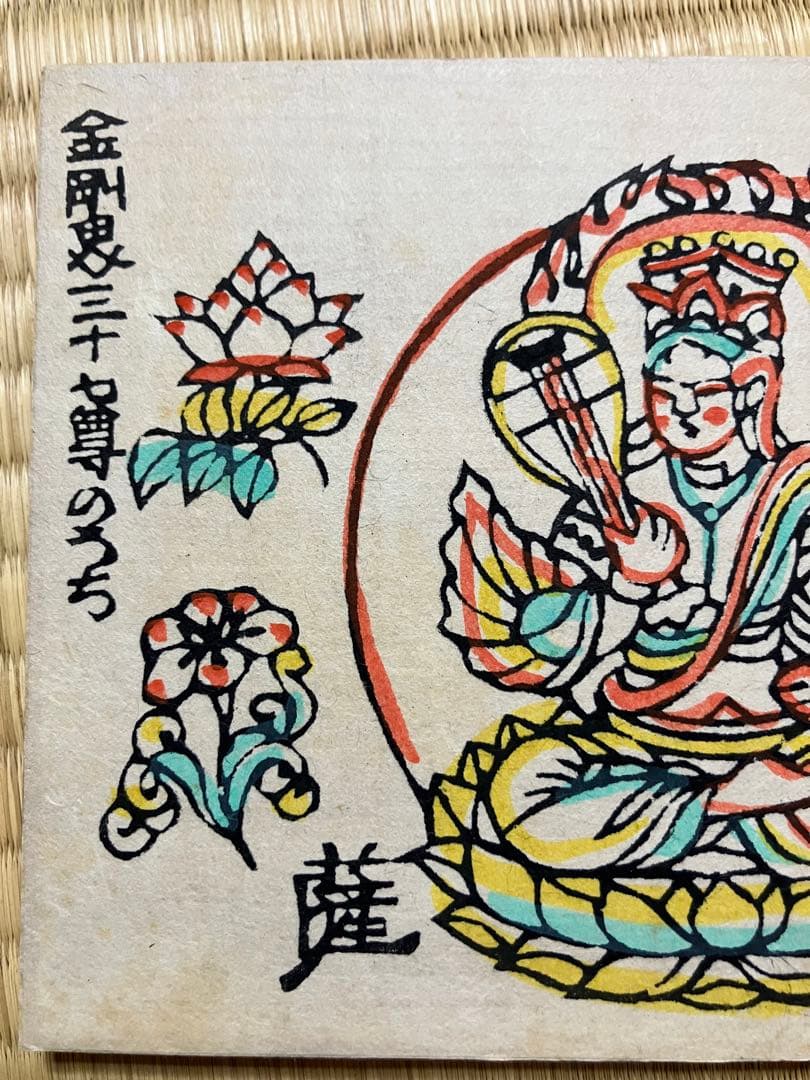 金剛界三十七尊のうち
薩